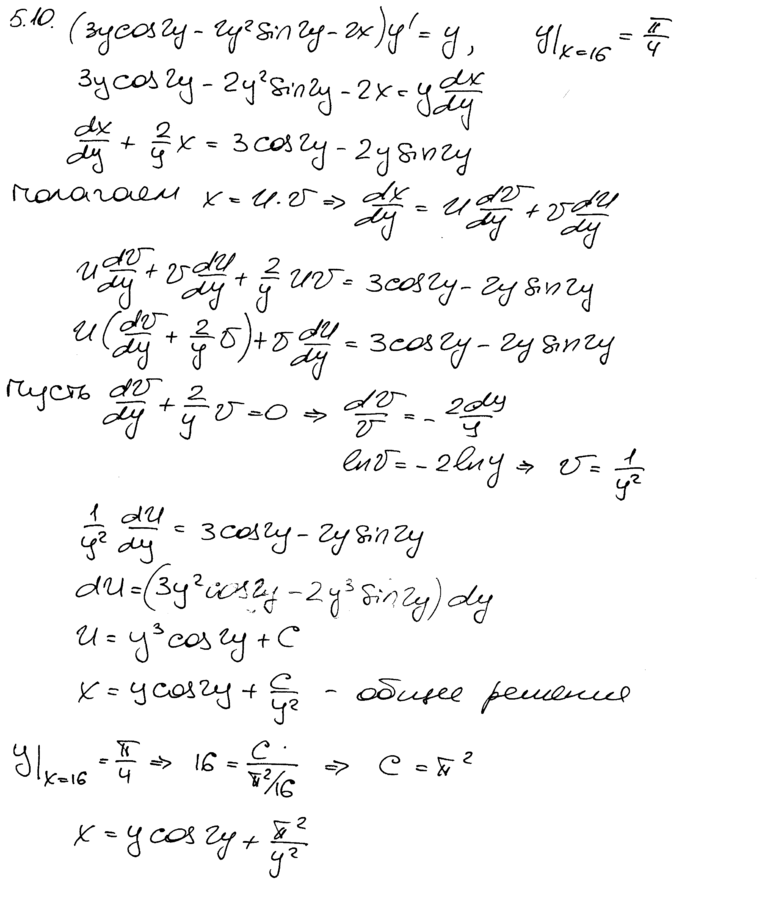 5.10. (3ycos2y - 2y² sin2y - 2x)y' = y, y|ₓ₌₁₆ = π/4
3ycos2y - 2y² sin2y - 2x = y dx/dy
dx/dy + 2/y x = 3cos2y - 2y sin2y
Полагаем x = u·v ⇒ dx/dy = u dv/dy + v du/dy
u dv/dy + v du/dy + 2/y uv = 3cos2y - 2y sin2y
u(dv/dy + 2/y v) + v du/dy = 3cos2y - 2y sin2y
Пусть dv/dy + 2/y v = 0 ⇒ dv/v = - 2dy/y
lnv = -2lny ⇒ v = 1/y²
1/y² du/dy = 3cos2y - 2y sin2y
du = (3y² cos2y - 2y³ sin2y) dy
u = y³ cos2y + C
x = ycos2y + C/y² - общее решение
y|ₓ₌₁₆ = π/4 ⇒ 16 = C/(π²/16) ⇒ C = π²
x = ycos2y + π²/y²